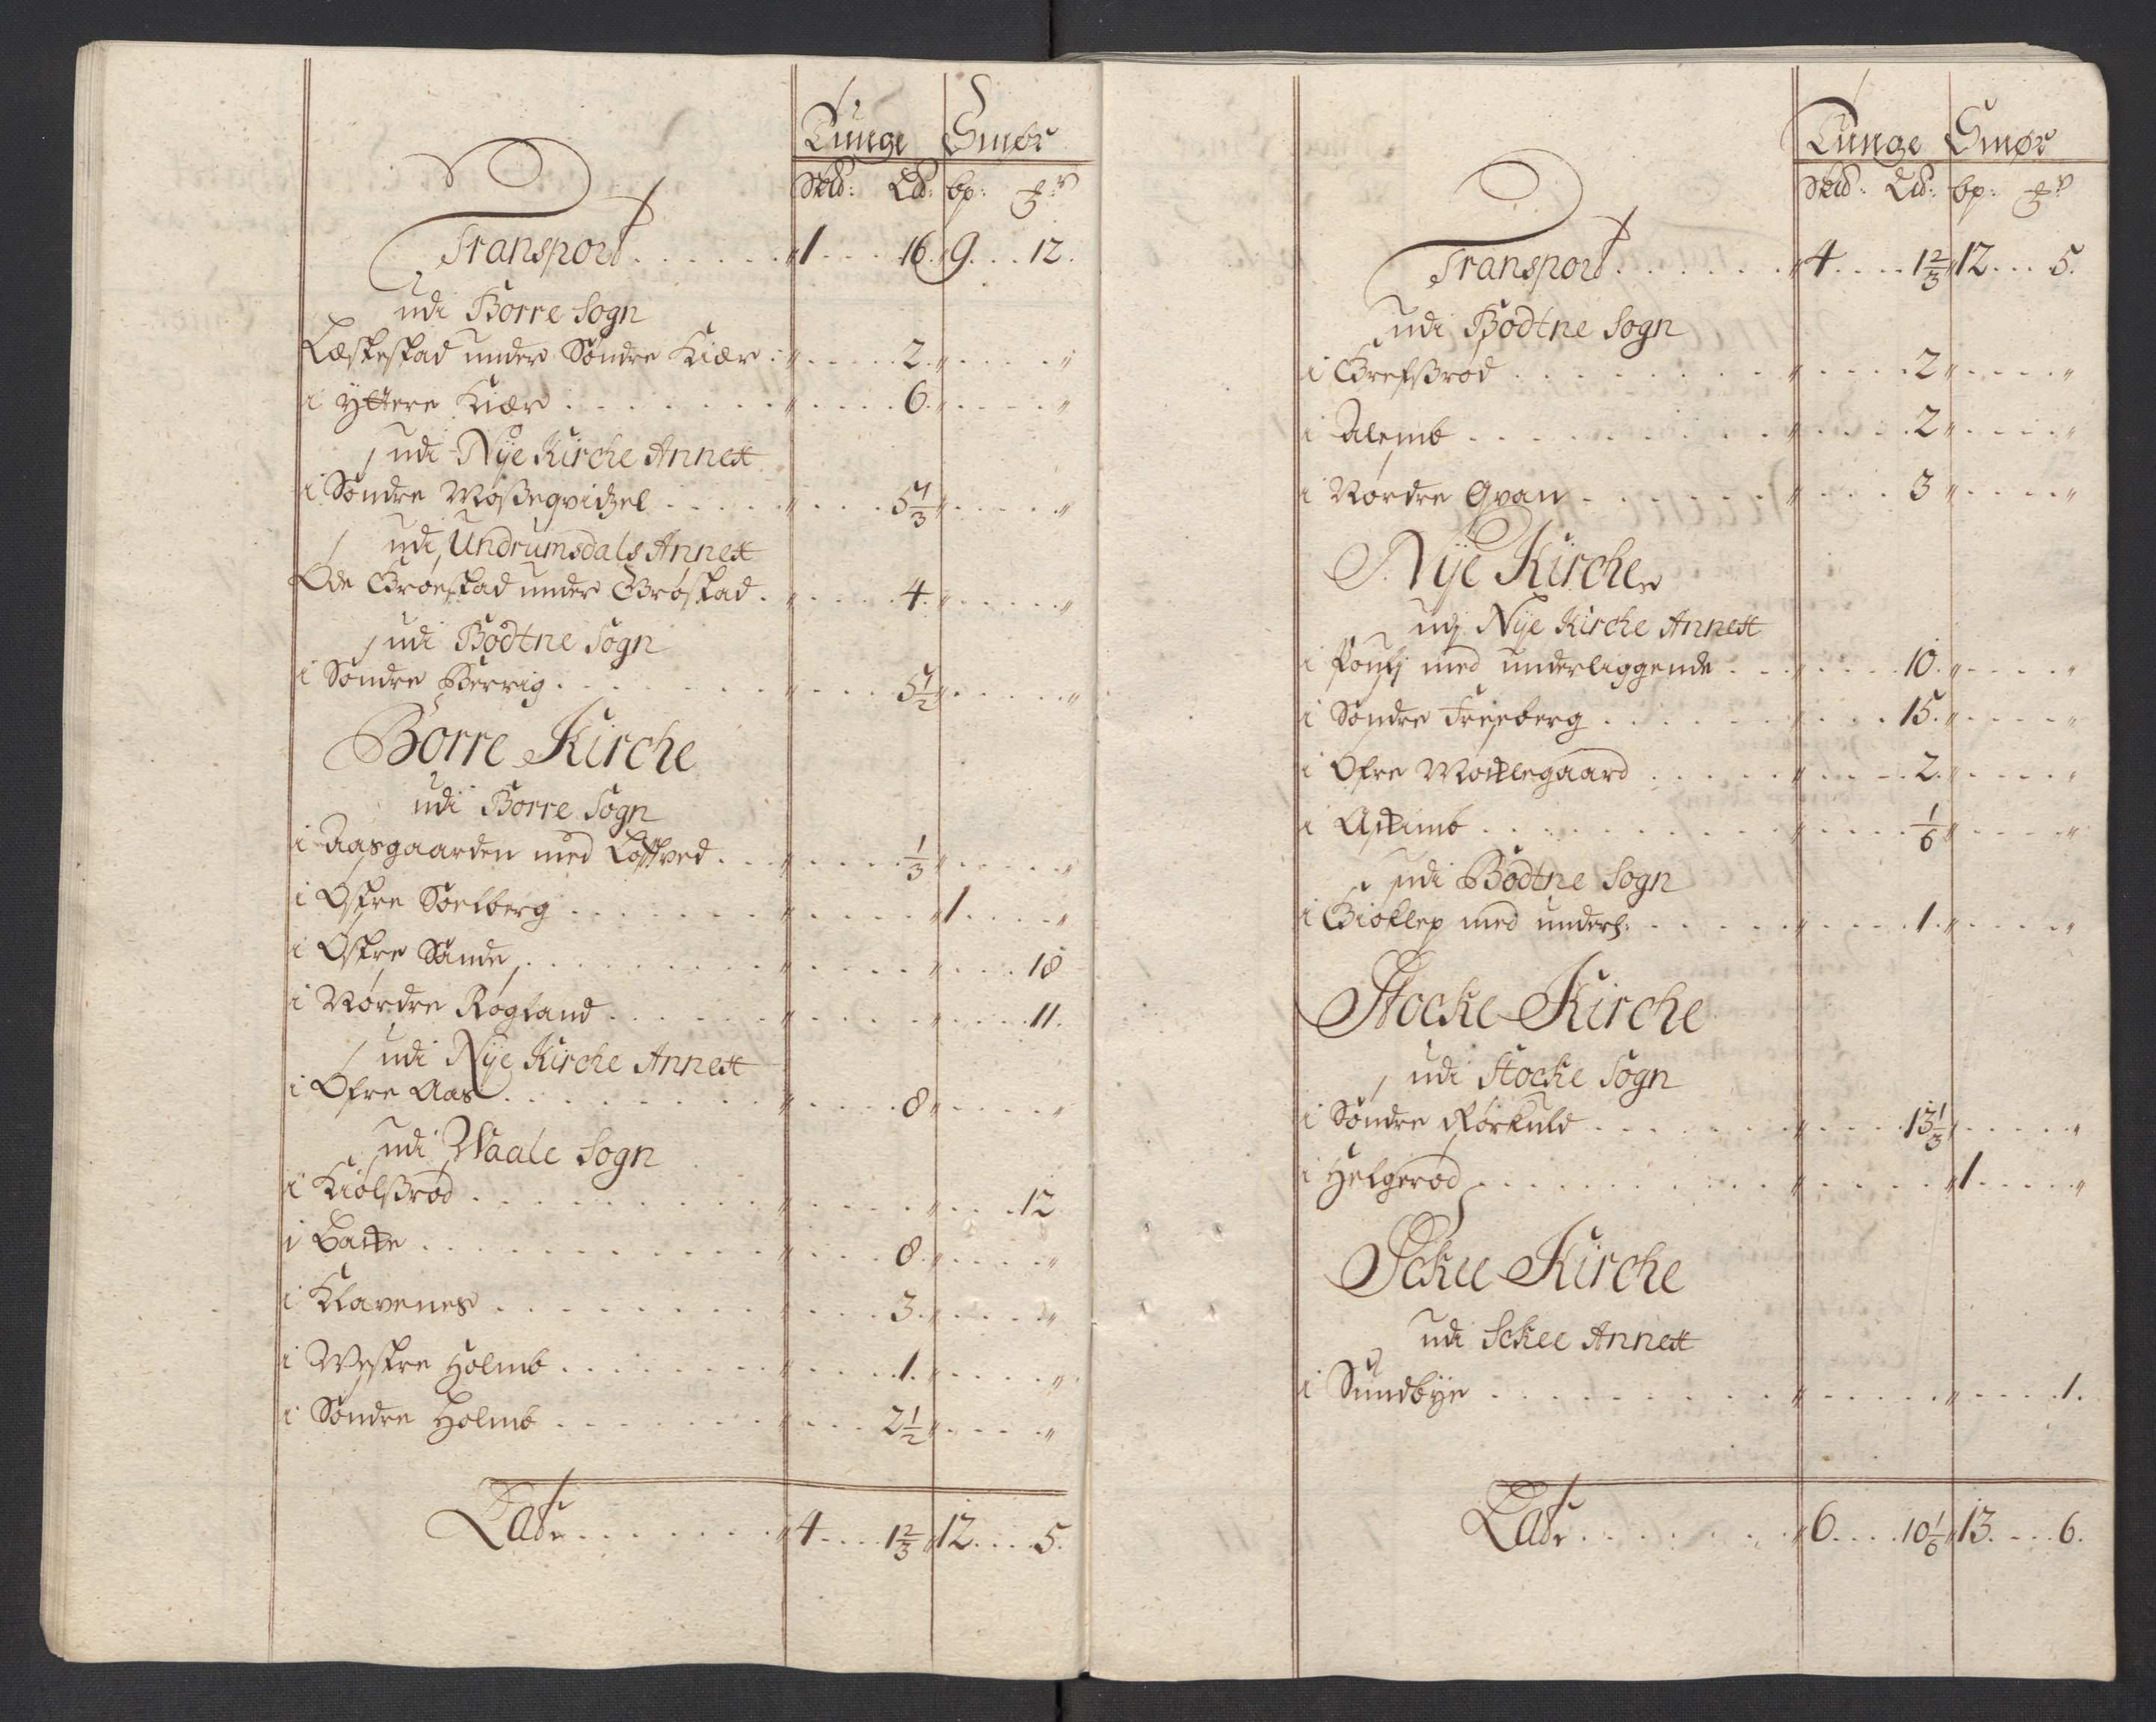 Tunge Smør
Skd: Ld: bp: ℔r
Transport . . . . . . " 1 . . . 16. " 9 . . . 12.
udi Borre Sogn
Læskestad under Søndre Kiær : " . . . . . 2. " . . . . "
i Yttere Kiær . . . . . . . " . . . . . 6. " . . . . "
udi Nÿe Kirche Annex
i Søndre Moßeqvidzel . . . . . " . . . 5 1/3 " . . . . "
udi Undrumsdals Annex
Øde Grøestad under Grøstad . " . . . . . 4. " . . . . "
udi Bodtne Sogn
i Søndre Berrig . . . . . . . " . . . . 5 1/2 " . . . . "
Borre Kirche
udi Borre Sogn
i Aasgaarden med Loftved . . " . . . . 1/3 " . . . . "
i Østre Soelberg . . . . . . . " . . . . . " 1 . . . . "
i Østre Sande . . . . . . . . " . . . . . " . . . . 18
i Nordre Rogland . . . . . . " . . . . . " . . . . 11.
udi Nÿe Kirche Annex
i Øfre Aas . . . . . . . . " . . . . . 8 " . . . . "
udi Waale Sogn
i Kiølßrød . . . . . . . . . " . . . . . " . . . . 12
i Backe . . . . . . . . . . " . . . . 8. " . . . . "
i Klavenes . . . . . . . . " . . . . 3. " . . . . "
i Westre Holmb . . . . . . " . . . . 1. " . . . . "
i Søndre Holmb . . . . . . " . . . . 2 1/2 " . . . . "
Later . . . . . . . " 4 . . . . 1 2/3 " 12 . . . . 5.
Tunge Smør
Skd: Ld: bp: ℔r
Transport . . . . . . " 4 . . . . 1 2/3 " 12 . . . 5.
udi Bodtne Sogn
i Grefßrød . . . . . . . . . " . . . . 2 " . . . . "
i Alemb . . . . . . . . . . " . . . . 2 " . . . . "
i Nordre Qvan . . . . . . . " . . . . 3 " . . . . "
Nÿe Kirche
udj Nÿe Kirche Annex
i med underliggende . . . " . . . . 10. " . . . . "
i Søndre Freeberg . . . . . . " . . . . 15. " . . . . "
i Øfre Mocklegaard . . . . . " . . . . 2. " . . . . "
i Askimb . . . . . . . . . . " . . . . 1/6 " . . . . "
udi Bodtne Sogn
i Gioklep med underl: . . . . . " . . . . 1. " . . . . "
Stocke Kirche
udi Stocke Sogn
i Søndre Rørkuld . . . . . . " . . . . 13 1/3 " . . . . "
i Helgerød . . . . . . . . . " . . . . . " 1 . . . . "
Sckee Kirche
udi Sckee Annex
i Sundbÿe . . . . . . . . . " . . . . . " . . . . 1.
Later . . . . . . . " 6 . . . . 10 1/6 " 13. . . . 6.